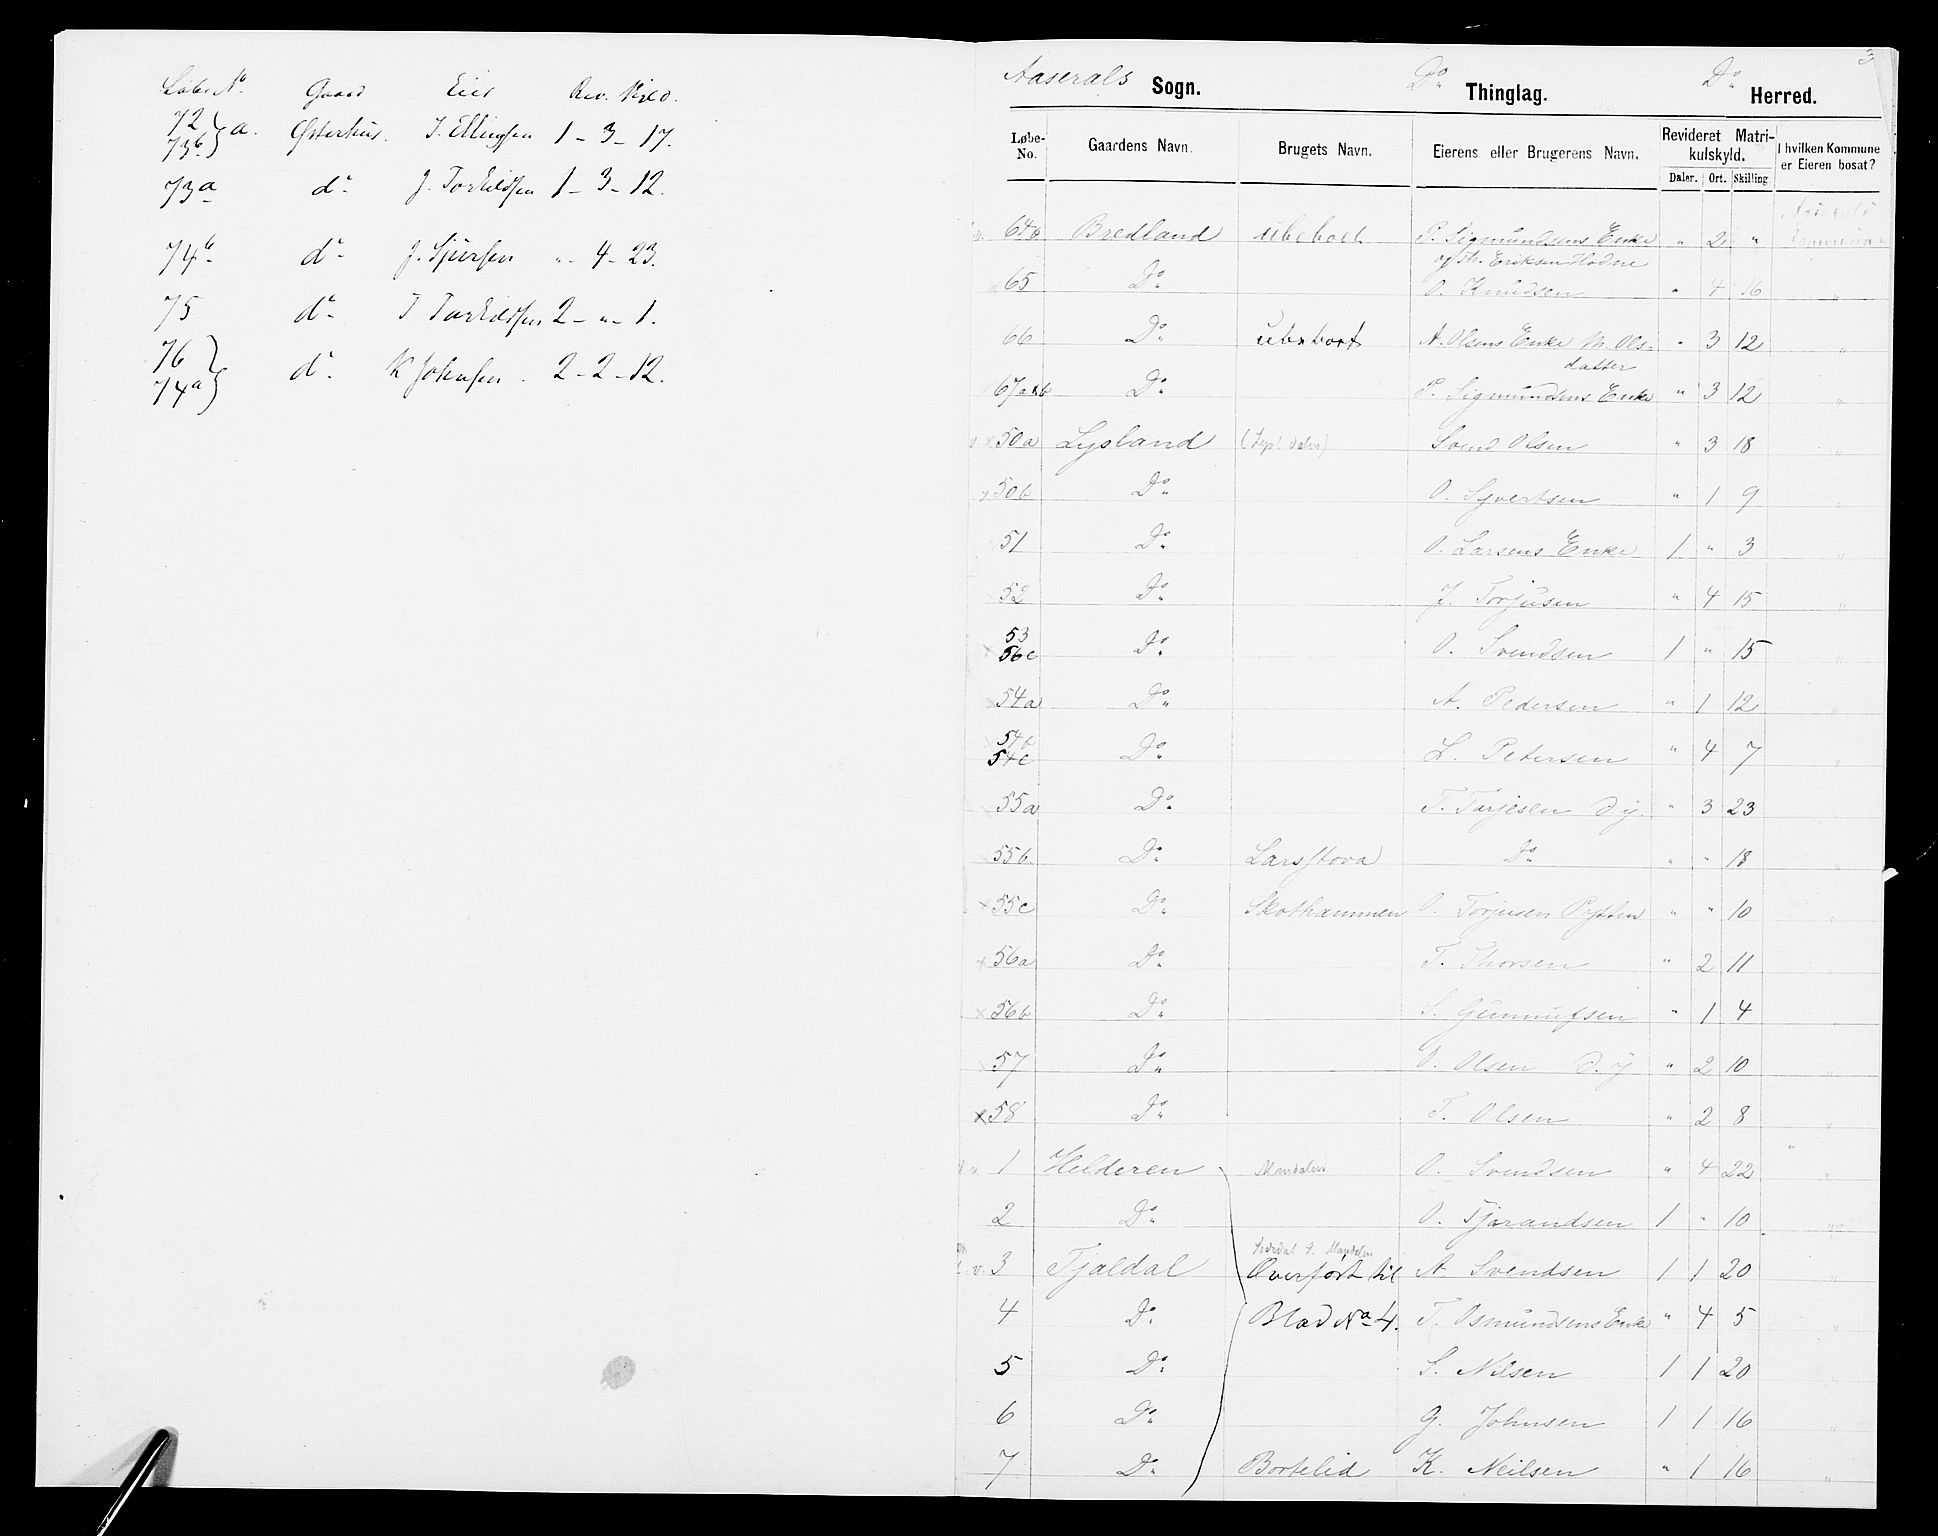 Løbe No Gaard Eier Rev. Skyld.
72 } a. Østerhus. T. Ellingsen 1 - 3 - 17.
73b }
73a do J. Torkildsen 1 - 3 - 12.
74b do J. Sjursen " - 4 - 23.
75 do T Torkildsen 2 - " - 1.
76 } do K Johnsen . 2 - 2 - 12.
74a }
3
Aaserals Sogn. Do Thinglag. Do Herred.
Løbe-No. Gaardens Navn. Brugets Navn. Eierens eller Brugerens Navn. Revideret Matrikulskyld. I hvilken Kommune er Eieren bosat?
Daler. Ort. Skilling.
64b Bredland ubeboet P. Sigmundsens Enke " 2 " Aaserals
v/ Th. Eriksen
65 Do O. Knudsen " 4 16 "
66 Do ubeboet A. Olsens Enke M. Ols- " 3 12 "
datter
67a&b Do P. Sigmundsens Enke " 3 12 "
x 50a Lysland Svend Olsen " 3 18 "
x 50b Do O. Syvertsen " 1 9 "
51 Do O. Larsens Enke 1 " 3 "
x 52 Do J. Torjusen " 4 15 "
53
x 56c Do O. Svendsen 1 " 15 "
x 54a Do A. Pedersen " 1 12 "
54b
54c Do L. Petersen " 4 7 "
x 55a Do T. Tarjesen d.y. " 3 23 "
x 55b Do Larsstova Do " " 18 "
x 55c Do Skothammen O. Torjusen Pytten " " 10 "
x 56a Do T. Thorsen " 2 11 "
x 56b Do S. Gunnufsen " 1 4 "
x 57 Do O. Olsen d.y " 2 10 "
x 58 Do T. Olsen " 2 8 "
1 Helderen Mandalen O. Svendsen " 4 22 "
2 Do O. Tjørandsen 1 " 10 "
Mandalen
v. 3 Tjaldal Overført til A. Svendsen 1 1 20 "
4 Do Blad No 4. T. Osmundsens Enke " 4 5 "
5 Do S. Nilsen 1 1 20 "
6 Do G. Johnsen 1 1 16 "
7 Do Bortelid K. Neilsen " 1 16 "